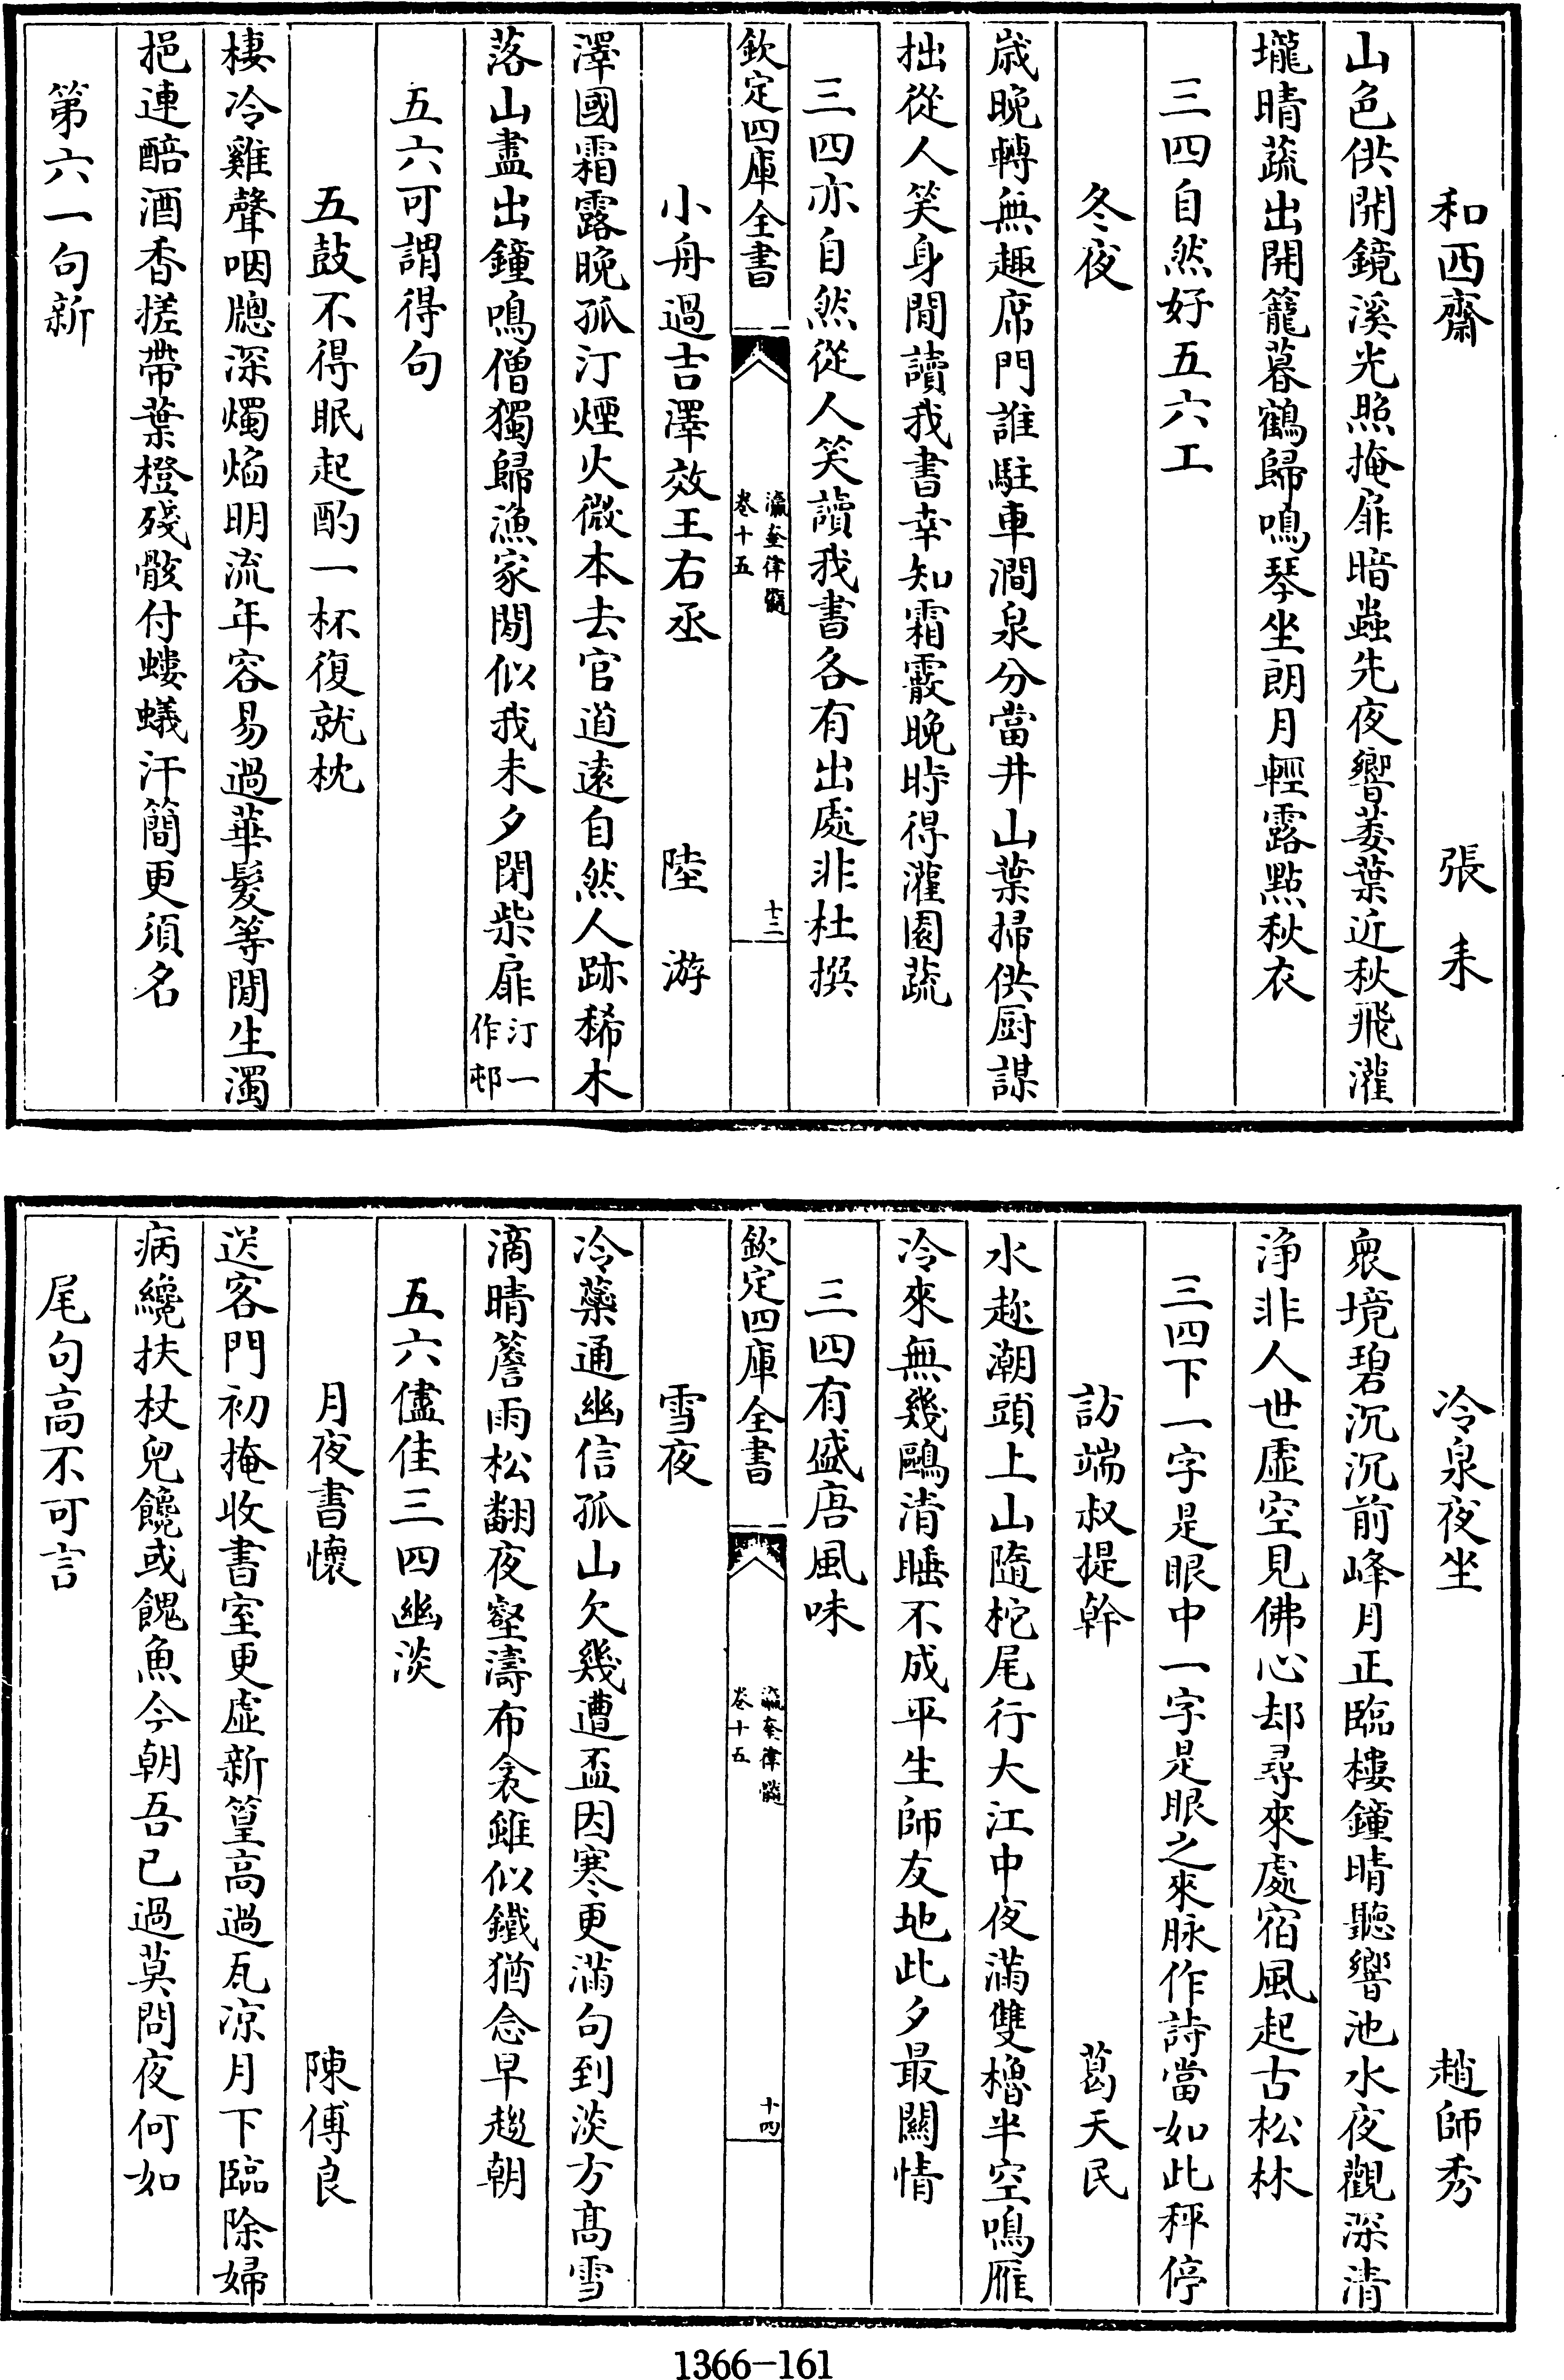 和西齋　張耒
山色供開鏡溪光照掩扉暗蟲先夜響萎葉近秋飛灌
壠晴蔬出開籠暮鶴歸鳴琴坐朗月輕露點秋衣
三四自然好五六工
冬夜
歳晚轉無趣席門誰駐車澗泉分當井山葉掃供厨謀
拙從人笑身閒讀我書幸知霜霰晚時得灌園蔬
三四亦自然從人笑讀我書各有出處非杜撰
欽定四庫全書　瀛奎律髓　卷十五　十三
小舟過吉澤效王右丞　陸游
澤國霜露晚孤汀煙火微本去官道遠自然人跡稀木
落山盡出鐘鳴僧獨歸漁家閒似我未夕閉柴扉汀一作邨
五六可謂得句
五鼓不得眠起酌一杯復就枕
棲冷雞聲咽牕深燭焰明流年容易過華髮等閒生濁
挹連醅酒香搓帶葉橙殘骸付螻蟻汗簡更須名
第六一句新
冷泉夜坐　趙師秀
衆境碧沉沉前峰月正臨樓鐘晴聽響池水夜觀深清
淨非人世虛空見佛心却尋來處宿風起古松林
三四下一字是眼中一字是眼之來脉作詩當如此秤停
訪端叔提幹　葛天民
水趂潮頭上山隨柁尾行大江中夜滿雙櫓半空鳴雁
冷來無幾鷗清睡不成平生師友地此夕最關情
三四有盛唐風味
欽定四庫全書　瀛奎律髓　卷十五　十四
雪夜
冷蘂通幽信孤山欠幾遭盃因寒更滿句到淡方髙雪
滴晴簷雨松翻夜壑濤布衾雖似鐵猶念早趨朝
五六儘佳三四幽淡
月夜書懷　陳傅良
送客門初掩收書室更虛新篁高過瓦凉月下臨除婦
病纔扶杖兒饞或餽魚今朝吾已過莫問夜何如
尾句高不可言
1366-161